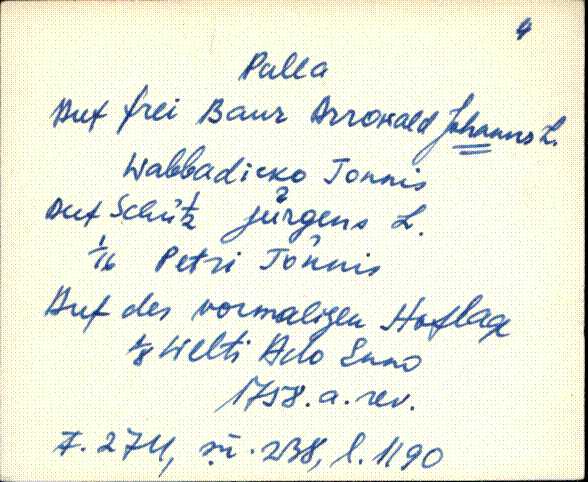 4
Palla
Auf frei Baur Arrowald Johanns L.
Wabbadicko Tonnis
Auf Schütz Jürgens L.
1/16 Petri Tönnis
Auf des vormaligen Hoflage
1/8 Welti Ado Enno
1758. a. rev.
F. 274, sü. 238, l. 1190